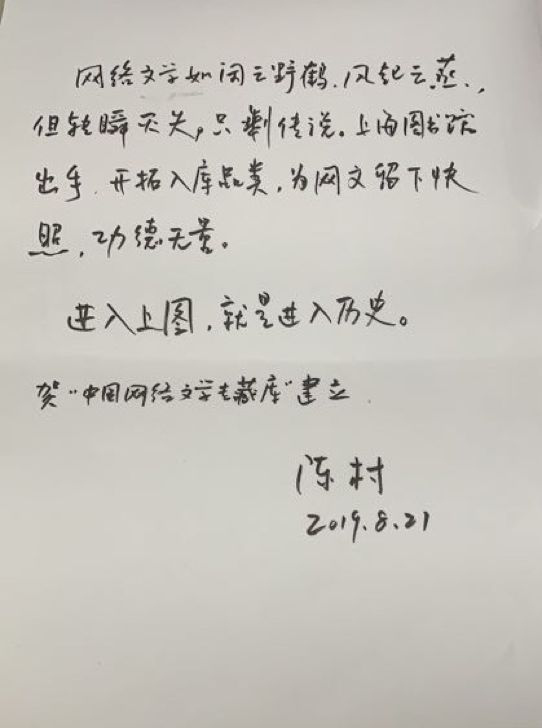 网络文学如闲云野鹤，风起云蒸，
但转瞬灭失，只剩传说。上海图书馆
出手，开拓入库品类，为网文留下快
照，功德无量。
进入上图，就是进入历史。
贺“中国网络文学专藏库”建立
陈村
2019.8.21